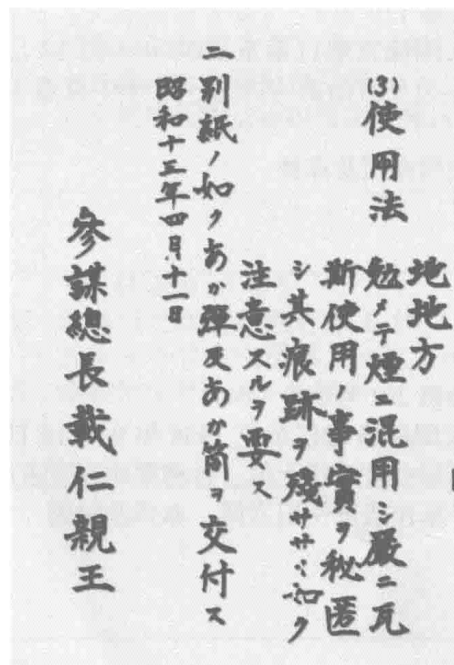 地地方
(3)使用法 勉メテ煙ニ混用シ嚴ニ瓦
斯使用ノ事實ヲ秘匿
シ其痕跡ヲ殘サヽル如ク
注意スルヲ要ス
二別紙ノ如クあか彈及あか筒ヲ交付ス
昭和十三年四月十一日
參謀總長載仁親王